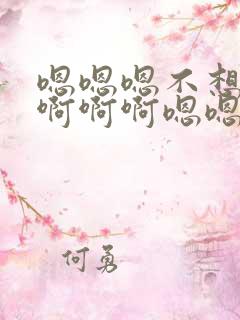 嗯嗯嗯不想
啊啊啊嗯嗯
何勇